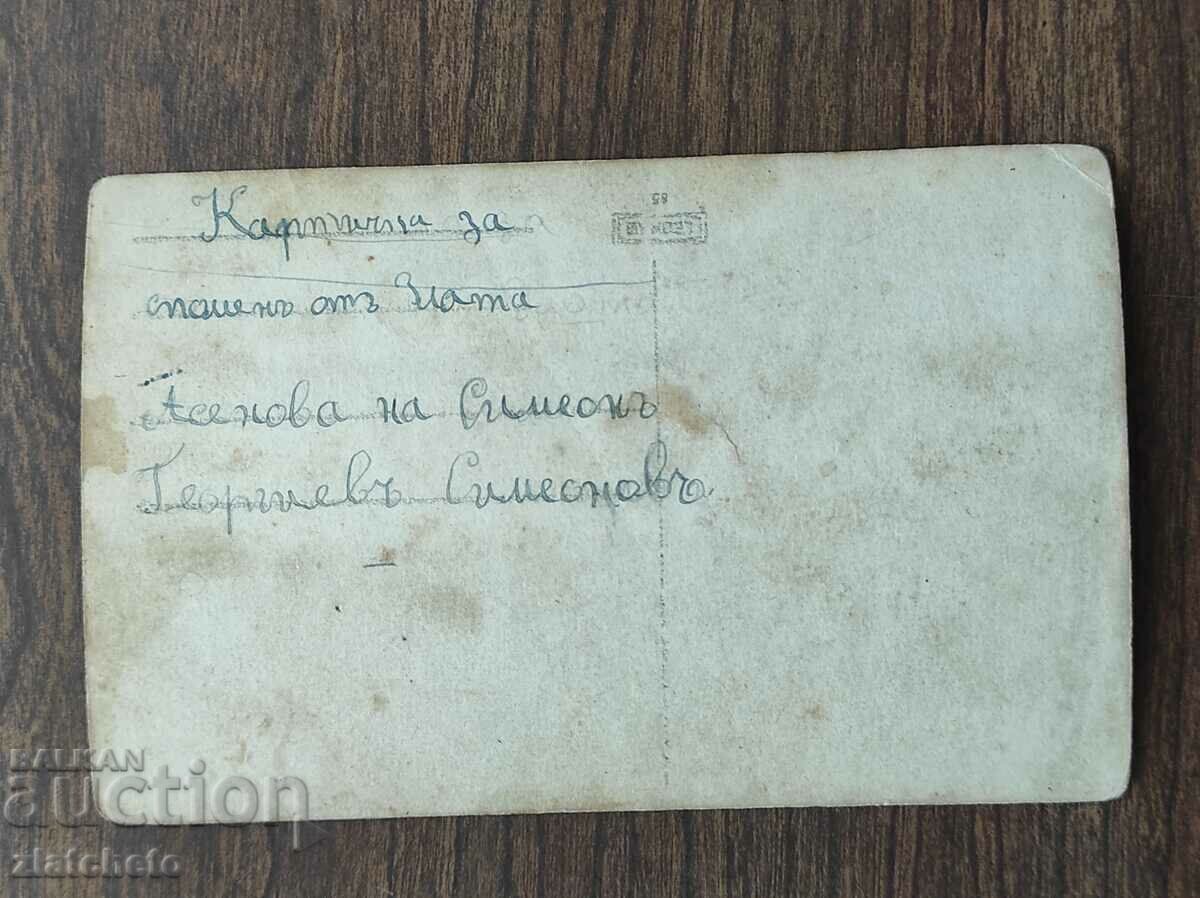 Картичка за
спомень отъ Злата
Асенова на Симеонъ
Георгиевъ Симеоновъ
85
BALKAN
auction
zlatcheto